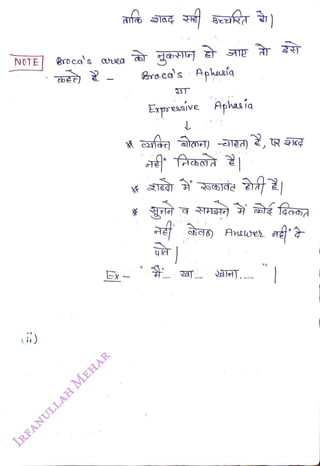 ताकि शब्द सही उच्चारित हो।
NOTE Broca's area को नुकसान हो जाए तो इसे
कहते है - Broca's Aphasia
या
Expressive Aphasia
↓
* व्यक्ति बोलना चाहता है, पर शब्द
नहीं निकलते है।
* शब्दो में रुकावट होती है।
* सुनने व समझने में कोई दिक्कत
नहीं केवल Answer नहीं दे
पाते।
Ex - " मैं... खा... खाना..... "।
(ii)
IRFANULLAH MEHAR